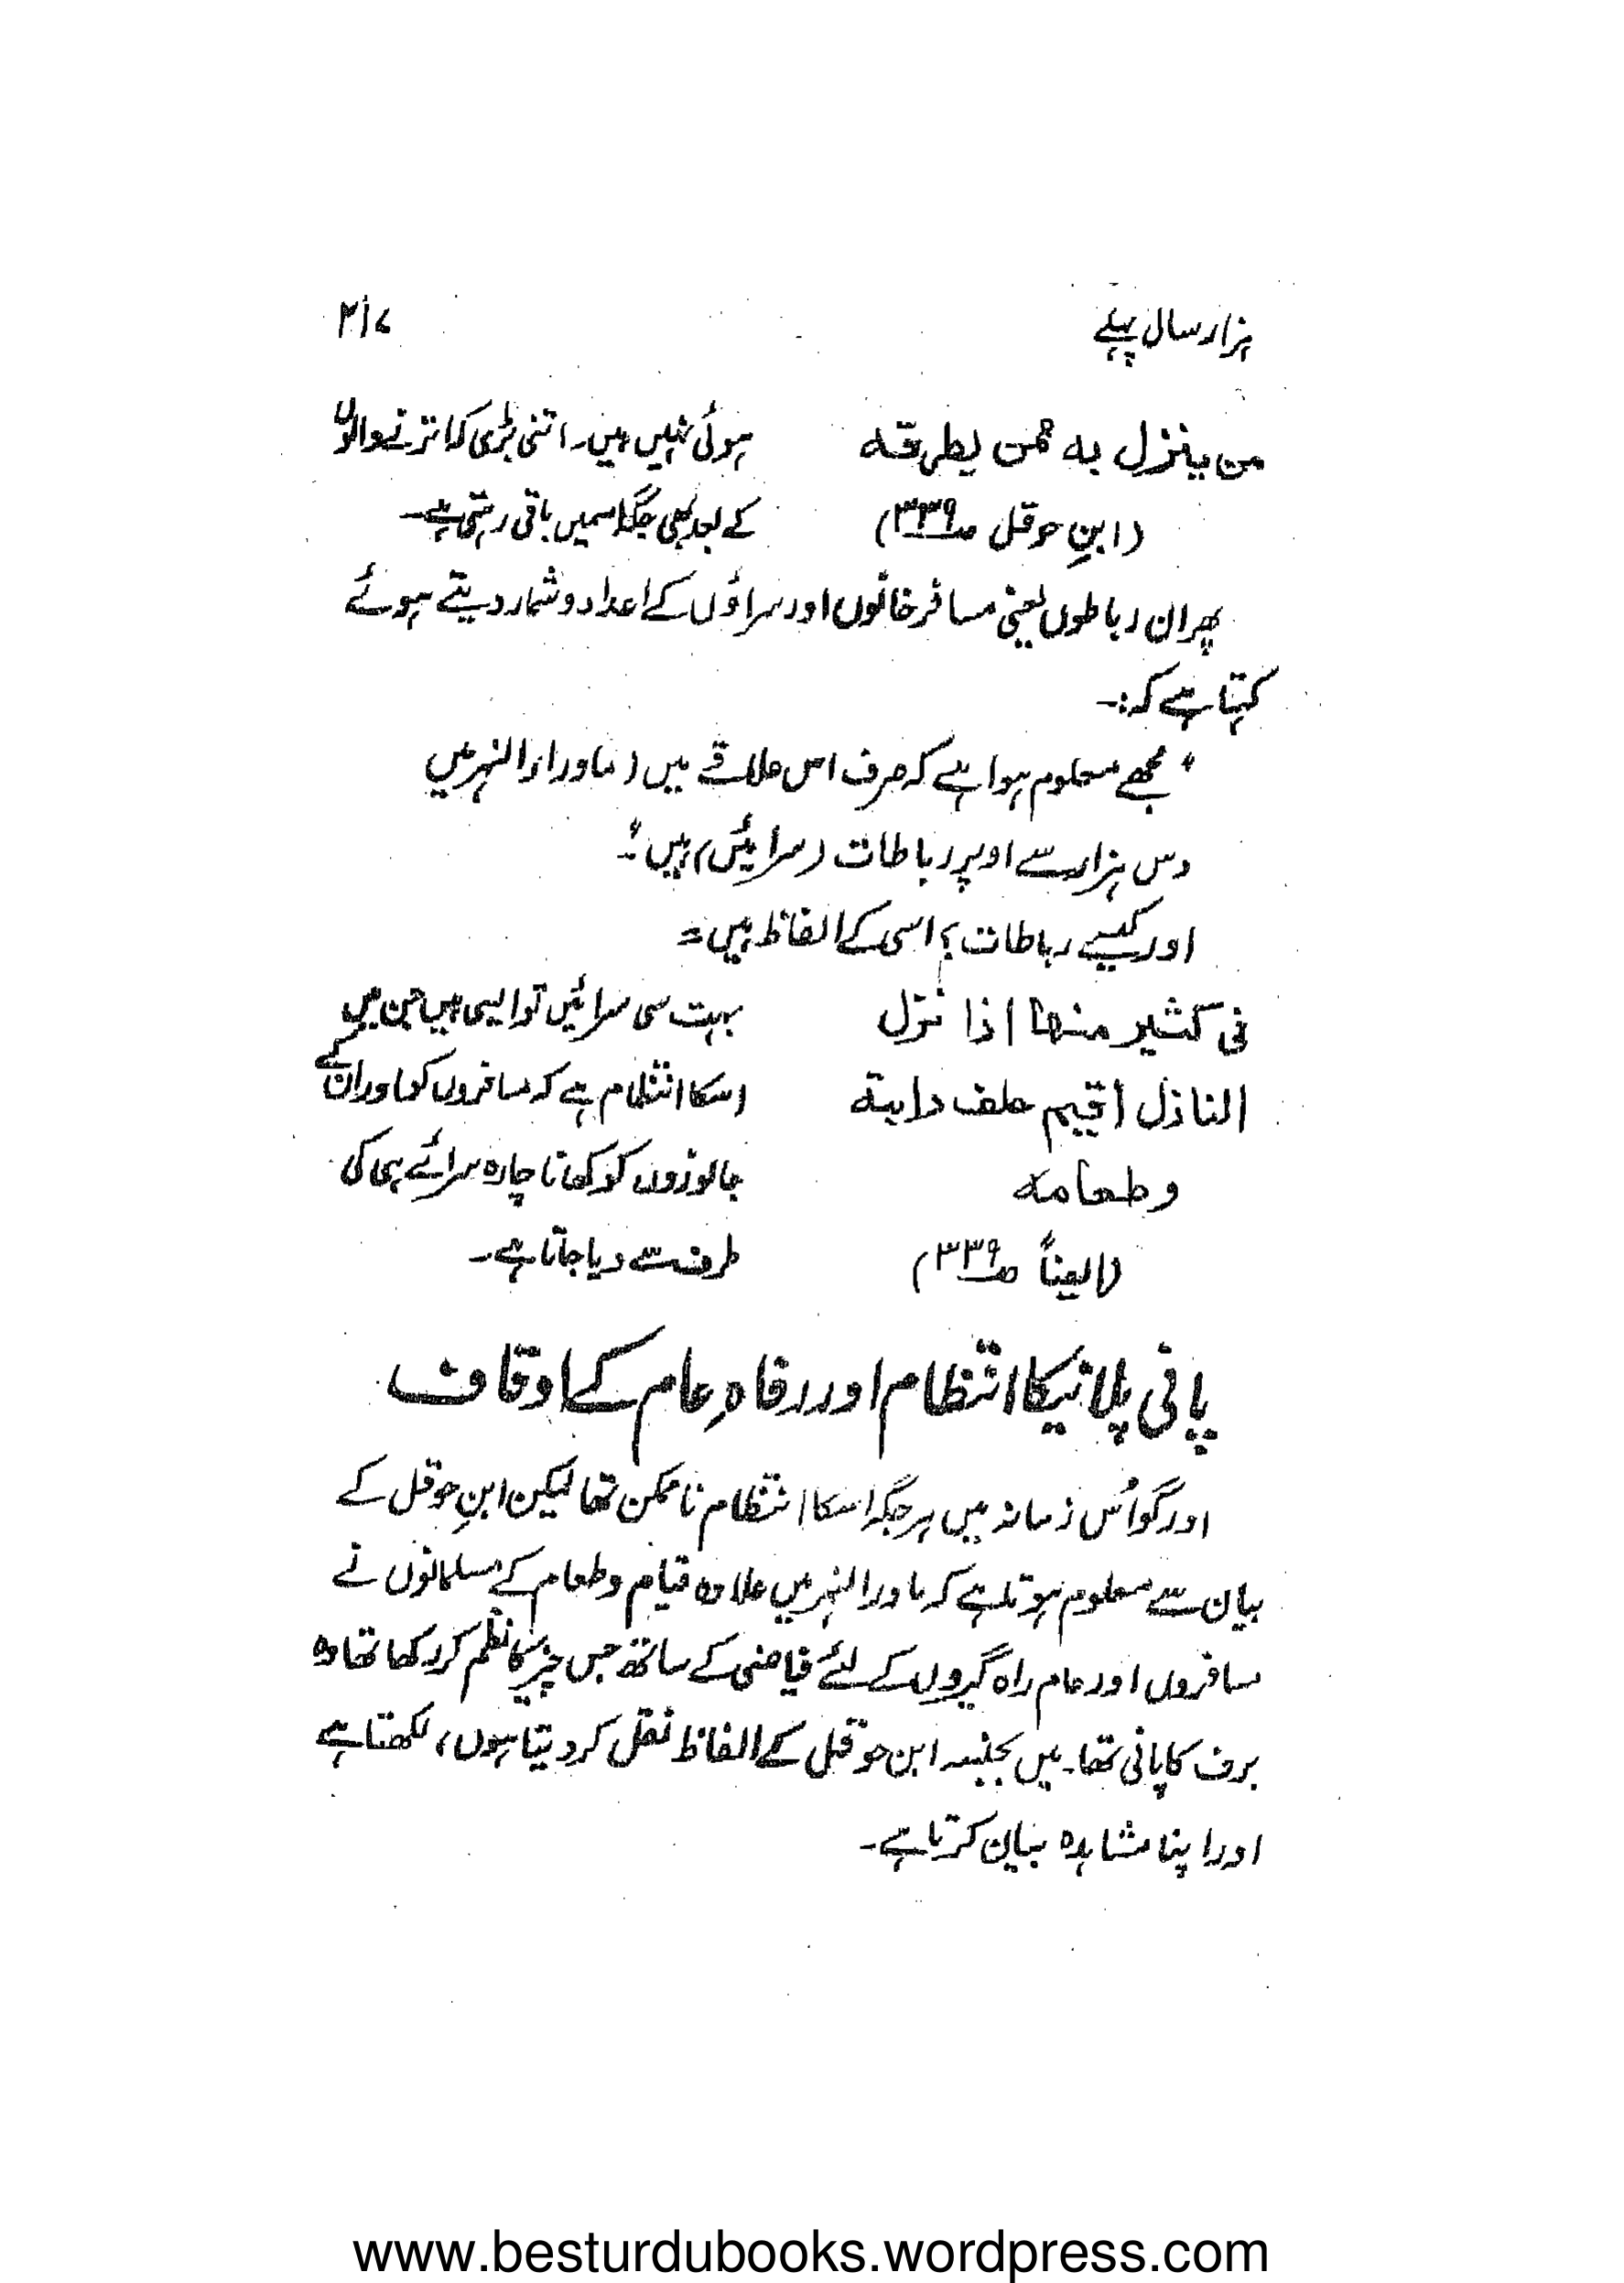 ہزار سال پہلے
۲۱۷
من ینزل به ممن یطرقه
(ابنِ حوقل صـ۳۳۹)
ہوئی نہیں ہیں۔ اتنی بڑی کہ اترنے والوں
کے بعد بھی جگہ اسمیں باقی رہتی ہے۔
پھر ان رباطوں یعنی مسافر خانوں اور سراؤں کے اعداد و شمار دیتے ہوئے
کہتا ہے کہ:۔
"مجھے معلوم ہوا ہے کہ صرف اس علاقے میں (ماوراء النہر میں
دس ہزار سے اوپر رباطات (سرائیں) ہیں"۔
اور کیسے رباطات؟ اسی کے الفاظ ہیں۔
فی کثیر منها اذا نزل
النازل اقیم علف دابتة
وطعامه
(ایضاً صـ۳۳۹)
بہت سی سرائیں تو ایسی ہیں جن میں
اسکا انتظام ہے کہ مسافروں کو اور ان کے
جانوروں کو کھانا چارہ سرائے ہی کی
طرف سے دیا جاتا ہے۔
پانی پلانیکا انتظام اور رفاہِ عام کے اوقاف
اور گو اُس زمانہ میں ہر جگہ اسکا انتظام ناممکن تھا لیکن ابنِ حوقل کے
بیان سے معلوم ہوتا ہے کہ ماورالنہر میں علاوہ قیام و طعام کے مسلمانوں نے
مسافروں اور عام راہ گیروں کے لئے فیاضی کے ساتھ جس چیز کا نظم کر رکھا تھا وہ
برف کا پانی تھا۔ میں بجنسہ ابن حوقل کے الفاظ نقل کر دیتا ہوں، لکھتا ہے
اور اپنا مشاہدہ بیان کرتا ہے۔
www.besturdubooks.wordpress.com